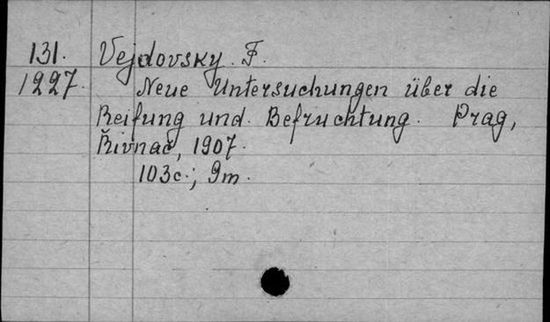 131. Vejdovsky. F.
1227. Neue Untersuchungen über die
Reifung und Befruchtung. Prag,
Řivnač, 1907.
103c.; 9m.